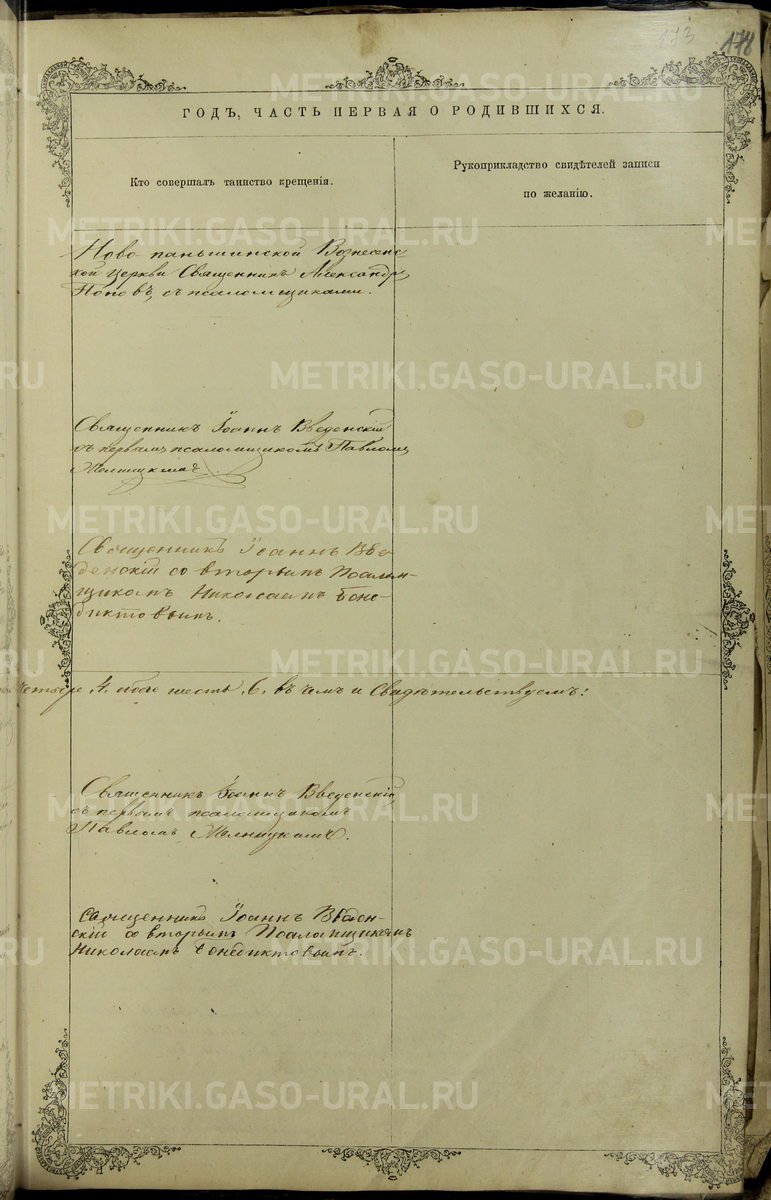 173 178
ГОДЪ, ЧАСТЬ ПЕРВАЯ О РОДИВШИХСЯ.
Кто совершалъ таинство крещенія.
Рукоприкладство свидѣтелей записи
по желанію.
Ново паньшинской Вознесенс
кой церкви Священникъ Александръ
Поповъ, съ псаломщиками.
Священникъ Іоаннъ Введенскій
съ первымъ псаломщикомъ Павломъ
Священникъ Іоаннъ Вве-
денскій со вторымъ Псалом-
щикомъ Николаемъ Бене-
диктовымъ.
четыре 4. обоего шесть 6. въ чемъ и Свидѣтельствуемъ:
Священникъ Іоаннъ Введенскій
съ первымъ псаломщикомъ
Павломъ
Священникъ Іоаннъ Введен-
скій со вторымъ Псаломщикомъ
Николаемъ Бенедиктовымъ.
METRIKI.GASO-URAL.RU